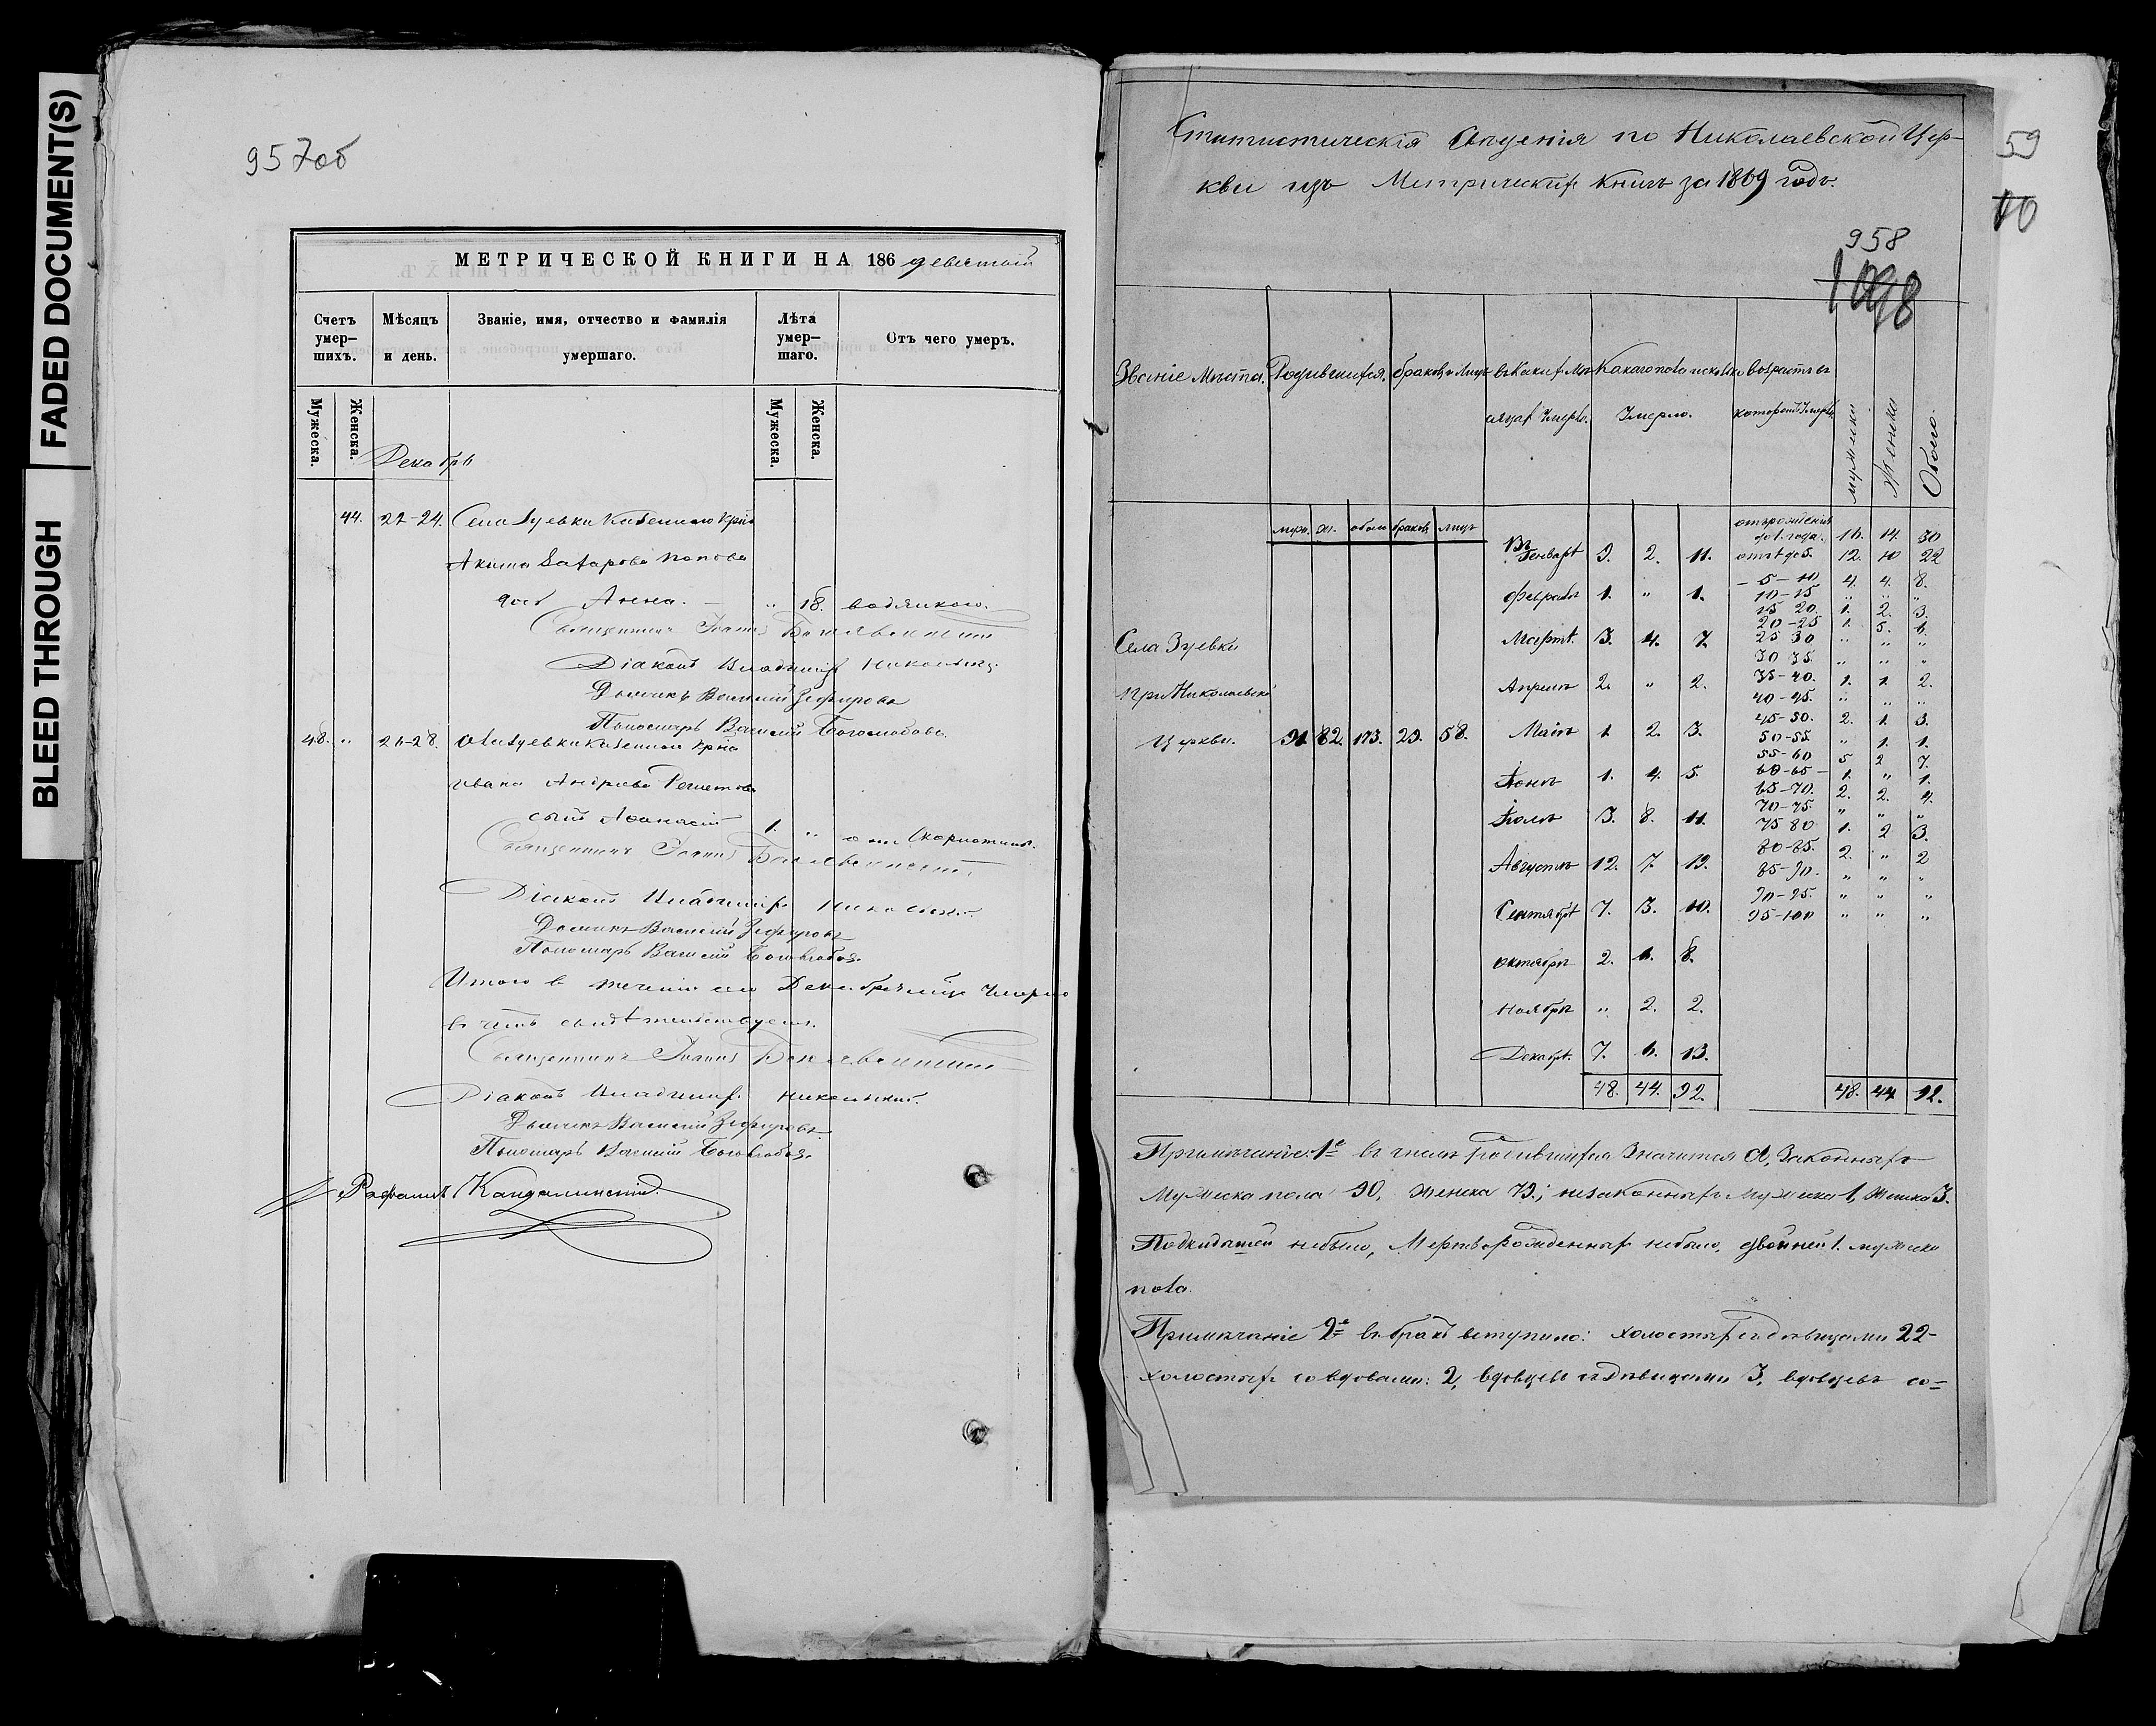 FADED DOCUMENT(S)
BLEED THROUGH
957об
МЕТРИЧЕСКОЙ КНИГИ НА 186 девятый
Счетъ умер-шихъ.
Мѣсяцъ и день.
Званіе, имя, отчество и фамилія умершаго.
Лѣта умер-шаго.
Отъ чего умеръ.
Мужеска. Женска. Мужеска. Женска.
Декабрь
44. 22-24. Села Зуевки Казеннаго Крн
Акима Захарова Попова
дочь Анна. — „ 18. водяною.
Священникъ Іоаннъ Богоявленскій
Діаконъ Владиміръ Никольскій
Дьячекъ Василій Зефировъ
Пономарь Василій Боголюбовъ.
48. „ 26-28. Села Зуевки Казеннаго Крна
Ивана Андреева Решетова
сынъ Афанасій 1. „ отъ Скарлатины.
Священникъ Іоаннъ Богоявленскій
Діаконъ Владиміръ Никольскій
Дьячекъ Василій Зефировъ
Пономарь Василій Боголюбов.
Итого в течении сего Декабря мца Умерло
в чемъ свидѣтельствуемъ.
Священникъ Іоаннъ Богоявленскій
Діаконъ Владиміръ Никольскій.
Дьячекъ Василій Зефировъ
Пономарь Василій Боголюбов.
Кандалинский
59
10
Статистическія Сведенія по Николаевской Цер-
кви изъ Метрическихъ Книгъ за 1869 годъ.
958
1098
Званіе Мѣста. Родившихся. браковъ и Лицъ въ Какихъ Мѣ- Какаго пола и сколько возрастъ въ
сяцахъ Умерло. Умерло. которомъ Умерло.
мужески Женски Обоего.
муж. ж. обоего браков. лицъ
отъ рожденія до 1. года. 16. 14. 30
въ Генварѣ 9. 2. 11. отъ 1 до 5. 12. 10 22
- 5 - 10 4. 4. 8.
Февралѣ 1. „ 1. 10 - 15 „ „ „
15 20. 1. 2. 3.
20 - 25 1. 5. 6.
Села Зуевки Мартѣ. 3. 4. 7. 25 30 „ „ „
30 35. „ „ „
При Николаевской Апрелѣ 2. „ 2. 35 - 40. 1. 1. 2.
40 - 45. „ „ „
45 - 50. 2. 1. 3.
Церкви. 91. 82. 173. 29. 58. Маіѣ 1. 2. 3. 50 - 55. „ 1. 1.
55 - 60 5 2 7.
Іюнѣ 1. 4. 5. 60 - 65 - 1. „ 1.
65 - 70. 2. 2. 4.
Іюлѣ 3. 8. 11. 70 - 75. „ „ „
75 80 1. 2 3.
80 - 85. 2. „ 2
Августѣ 12. 7. 19. 85 - 90. „ „ „
Сентябрѣ 7. 3. 10. 90 - 95. „ „ „
95 - 100 „ „ „
октябрѣ 2. 6. 8.
Ноябрѣ „ 2. 2.
Декабрѣ. 7. 6. 13.
48. 44. 92. 48. 44 92.
Примѣчаніе. 1е въ числѣ родившихся Значится а, Законныхъ
Мужеска пола 90, женска 79; незаконныхъ мужеска 1, Женска 3.
Подкидышей небыло, Мертворожденныхъ небыло, двойней 1. мужески
пола.
Примѣчаніе 2е въ бракъ вступило: холостыхъ съ дѣвицами 22-
холостыхъ со вдовами: 2, вдовцевъ съ дѣвицами 3, вдовцевъ со=